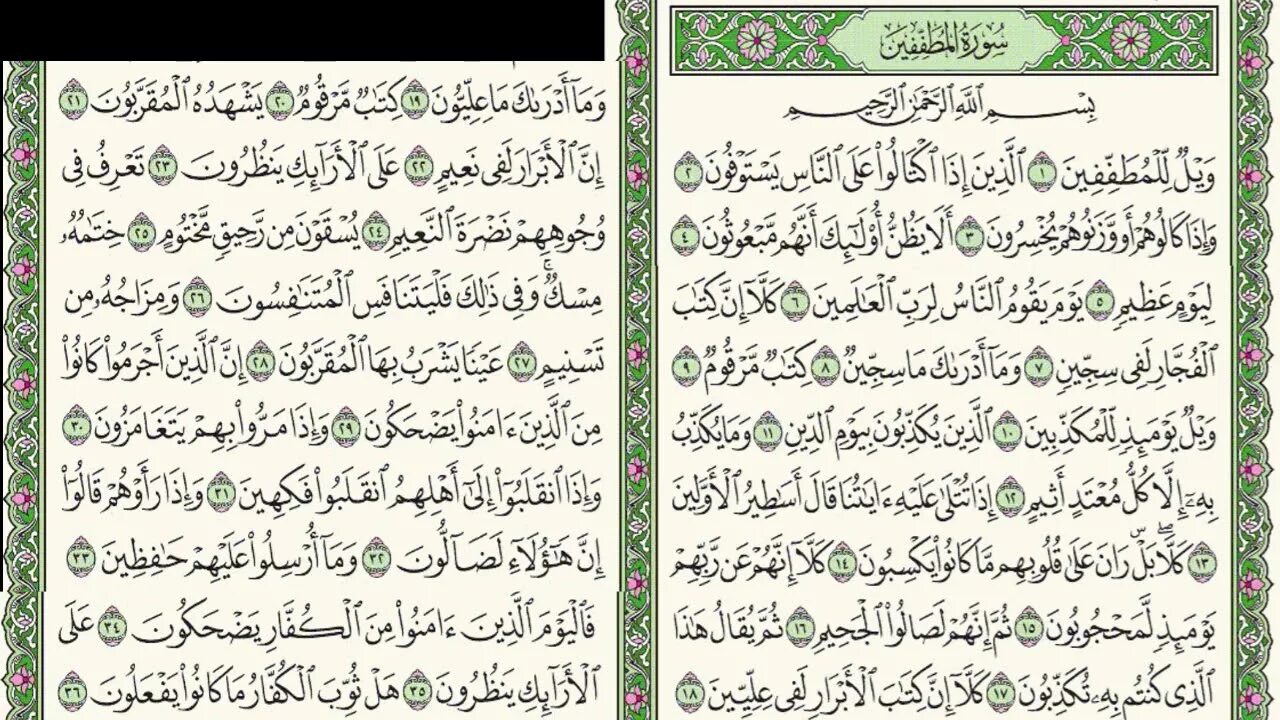 سُورَةُ المُطَفِّفِين
بِسْمِ ٱللَّهِ ٱلرَّحْمَٰنِ ٱلرَّحِيمِ
وَيْلٌ لِّلْمُطَفِّفِينَ ١ ٱلَّذِينَ إِذَا ٱكْتَالُوا۟ عَلَى ٱلنَّاسِ يَسْتَوْفُونَ ٢
وَإِذَا كَالُوهُمْ أَو وَّزَنُوهُمْ يُخْسِرُونَ ٣ أَلَا يَظُنُّ أُو۟لَٰٓئِكَ أَنَّهُم مَّبْعُوثُونَ ٤
لِيَوْمٍ عَظِيمٍ ٥ يَوْمَ يَقُومُ ٱلنَّاسُ لِرَبِّ ٱلْعَٰلَمِينَ ٦ كَلَّآ إِنَّ كِتَٰبَ
ٱلْفُجَّارِ لَفِى سِجِّينٍ ٧ وَمَآ أَدْرَىٰكَ مَا سِجِّينٌ ٨ كِتَٰبٌ مَّرْقُومٌ ٩
وَيْلٌ يَوْمَئِذٍ لِّلْمُكَذِّبِينَ ١٠ ٱلَّذِينَ يُكَذِّبُونَ بِيَوْمِ ٱلدِّينِ ١١ وَمَا يُكَذِّبُ
بِهِۦٓ إِلَّا كُلُّ مُعْتَدٍ أَثِيمٍ ١٢ إِذَا تُتْلَىٰ عَلَيْهِ ءَايَٰتُنَا قَالَ أَسَٰطِيرُ ٱلْأَوَّلِينَ
١٣ كَلَّا ۖ بَلْ ۜ رَانَ عَلَىٰ قُلُوبِهِم مَّا كَانُوا۟ يَكْسِبُونَ ١٤ كَلَّآ إِنَّهُمْ عَن رَّبِّهِمْ
يَوْمَئِذٍ لَّمَحْجُوبُونَ ١٥ ثُمَّ إِنَّهُمْ لَصَالُوا۟ ٱلْجَحِيمِ ١٦ ثُمَّ يُقَالُ هَٰذَا
ٱلَّذِى كُنتُم بِهِۦ تُكَذِّبُونَ ١٧ كَلَّآ إِنَّ كِتَٰبَ ٱلْأَبْرَارِ لَفِى عِلِّيِّينَ ١٨
وَمَآ أَدْرَىٰكَ مَا عِلِّيُّونَ ١٩ كِتَٰبٌ مَّرْقُومٌ ٢٠ يَشْهَدُهُ ٱلْمُقَرَّبُونَ ٢١
إِنَّ ٱلْأَبْرَارَ لَفِى نَعِيمٍ ٢٢ عَلَى ٱلْأَرَآئِكِ يَنظُرُونَ ٢٣ تَعْرِفُ فِى
وُجُوهِهِمْ نَضْرَةَ ٱلنَّعِيمِ ٢٤ يُسْقَوْنَ مِن رَّحِيقٍ مَّخْتُومٍ ٢٥ خِتَٰمُهُۥ
مِسْكٌ ۚ وَفِى ذَٰلِكَ فَلْيَتَنَافَسِ ٱلْمُتَنَٰفِسُونَ ٢٦ وَمِزَاجُهُۥ مِن
تَسْنِيمٍ ٢٧ عَيْنًا يَشْرَبُ بِهَا ٱلْمُقَرَّبُونَ ٢٨ إِنَّ ٱلَّذِينَ أَجْرَمُوا۟ كَانُوا۟
مِنَ ٱلَّذِينَ ءَامَنُوا۟ يَضْحَكُونَ ٢٩ وَإِذَا مَرُّوا۟ بِهِمْ يَتَغَامَزُونَ ٣٠
وَإِذَا ٱنقَلَبُوٓا۟ إِلَىٰٓ أَهْلِهِمُ ٱنقَلَبُوا۟ فَكِهِينَ ٣١ وَإِذَا رَأَوْهُمْ قَالُوٓا۟
إِنَّ هَٰٓؤُلَآءِ لَضَآلُّونَ ٣٢ وَمَآ أُرْسِلُوا۟ عَلَيْهِمْ حَٰفِظِينَ ٣٣
فَٱلْيَوْمَ ٱلَّذِينَ ءَامَنُوا۟ مِنَ ٱلْكُفَّارِ يَضْحَكُونَ ٣٤ عَلَى
ٱلْأَرَآئِكِ يَنظُرُونَ ٣٥ هَلْ ثُوِّبَ ٱلْكُفَّارُ مَا كَانُوا۟ يَفْعَلُونَ ٣٦